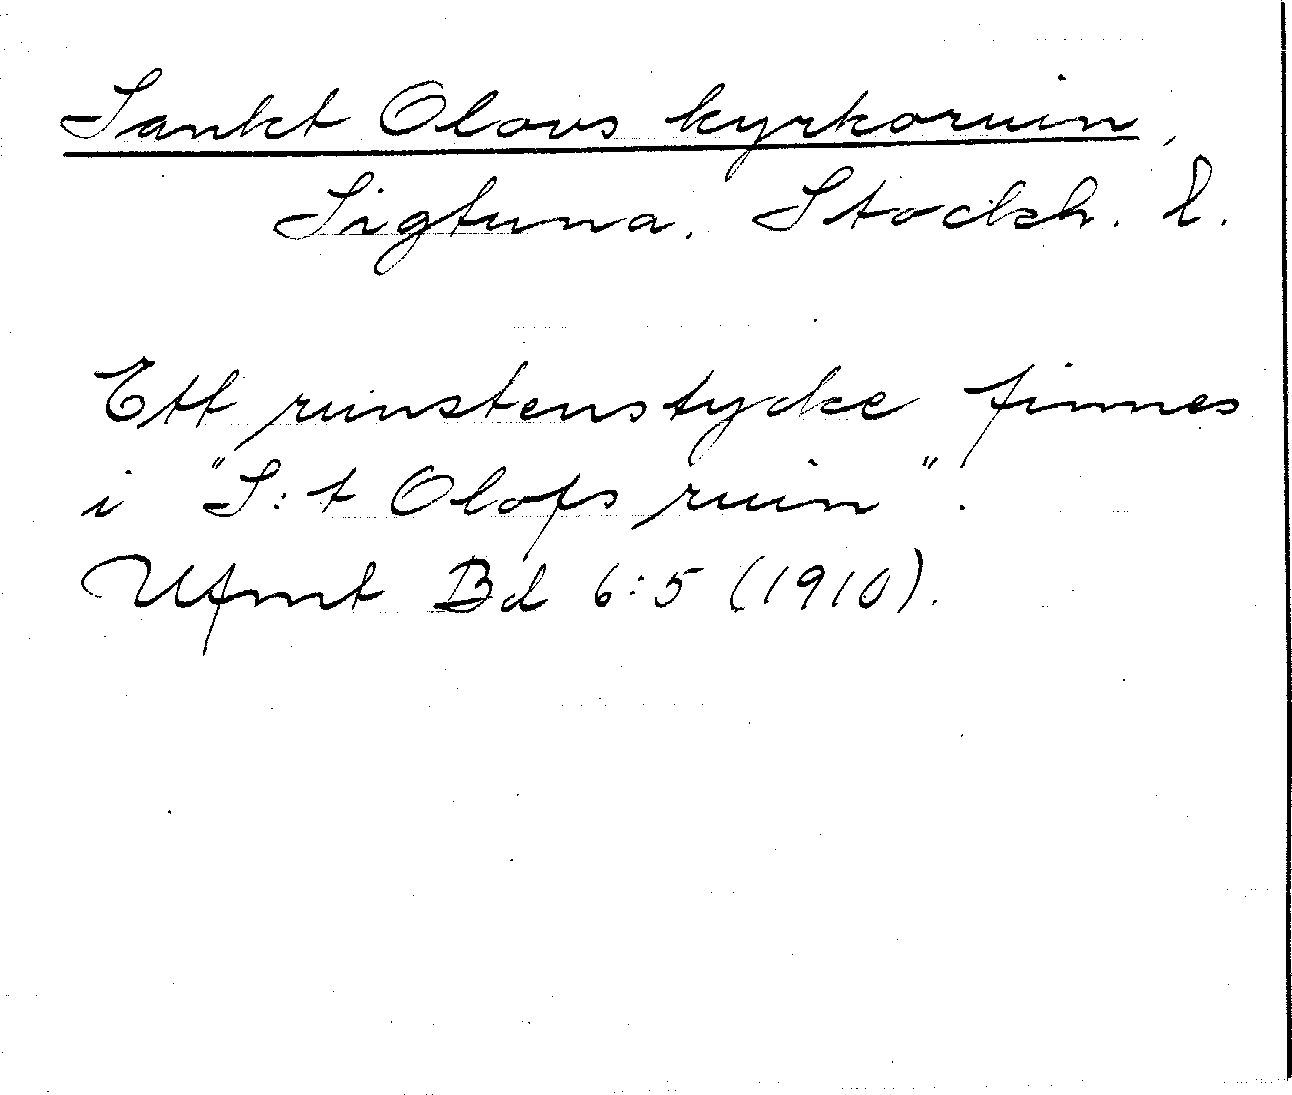 Sankt Olovs kyrkoruin,
Sigtuna. Stockh. l.
Ett runstenstycke finnes
i "S:t Olofs ruin".
Ufmt Bd 6:5 (1910).